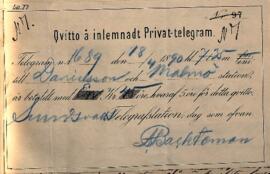 Lit. 77
N 7.
Qvitto å inlemnadt Privat-telegram.
N 7
Telegram n. 1689 den 18/4 1890 kl. 7 t. 25 m.
till Danielsson och Malmö station,
är betaldt med kr. 45 öre, hvaraf 5 öre för detta qvitto.
Sundsvall Telegrafstation, dag som ofvan.